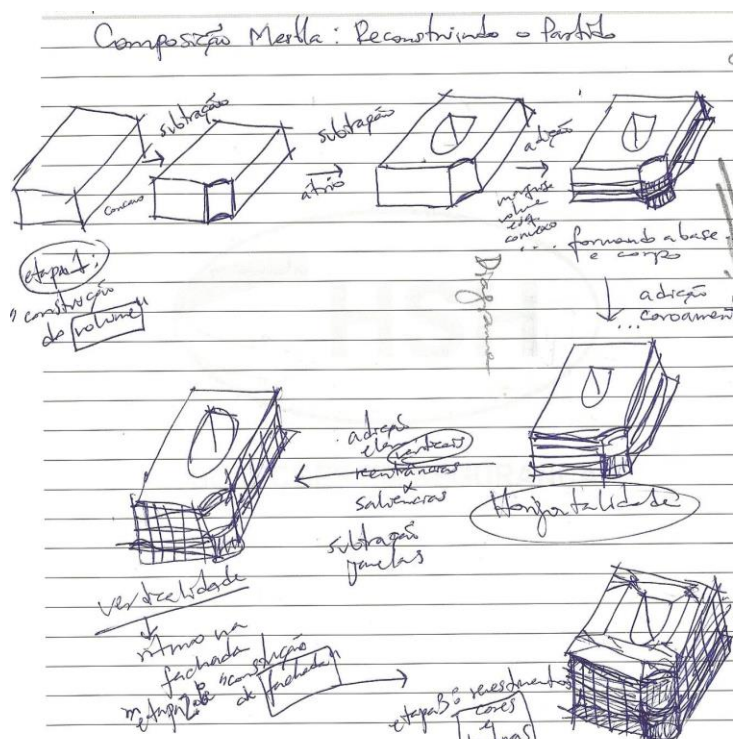 Composição Mesbla: Reconstruindo o Partido
subtração
côncavo
subtração
átrio
adição
marquise
volume
convexo
... formando a base
e corpo
etapa 1:
"construção
do volume"
Diagrama
adição
... coroamen
adição
elem. verticais
reentrâncias
&
saliências
subtração
janelas
Horizontalidade
verticalidade
ritmo na
fachada
etapa 2: "construção
de fachada"
etapa 3: revestimentos
cores
e